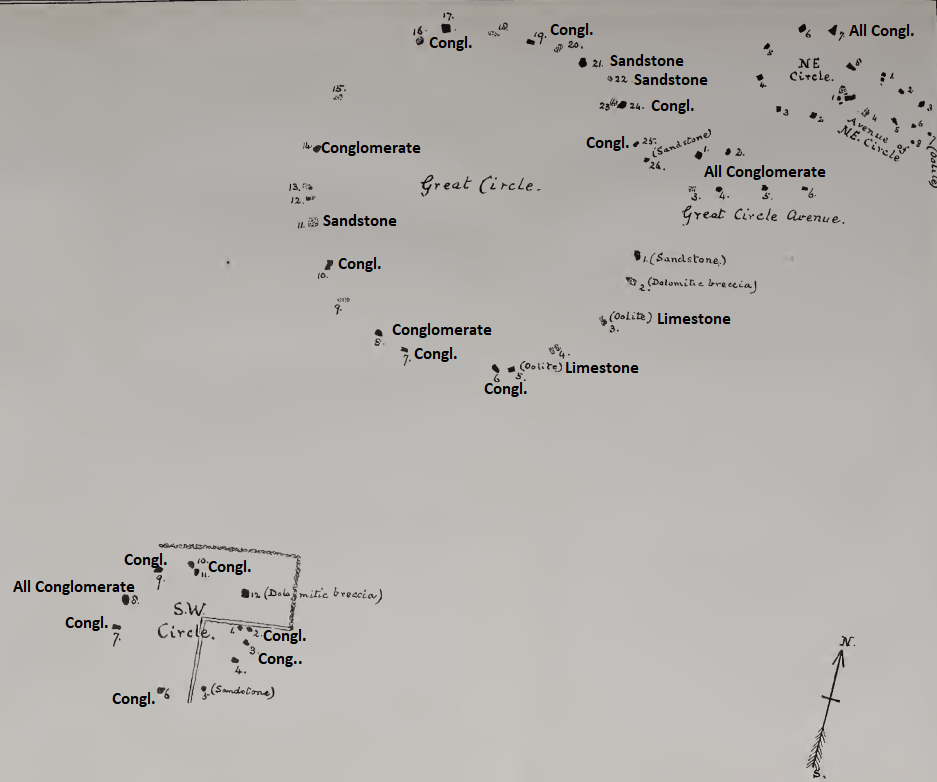 17.
16. 18. Congl.
Congl. 19. 20.
6 7, All Congl.
5
21. Sandstone
NE
Circle. 8
4. 1
22 Sandstone
2
15.
23 24. Congl.
3 2 1 3
4 5 6
Avenue of
NE. Circle
7 8
(Oolite)
Congl. 25. (Sandstone)
26. 1. 2.
14. Conglomerate
All Conglomerate
13. Great Circle.
12. 3. 4. 5. 6.
11. Sandstone
Great Circle Avenue.
10. Congl.
1. (Sandstone)
2. (Dolomitic breccia)
9.
(Oolite) Limestone
3.
8. Conglomerate
7. Congl.
4.
6 5. (Oolite) Limestone
Congl.
Congl. 10. Congl.
9. 11.
All Conglomerate 8.
12 (Dolomitic breccia)
S.W.
Circle.
Congl. 7. 1 2. Congl.
3. Cong..
4.
Congl. 6 5. (Sandstone)
N.
S.